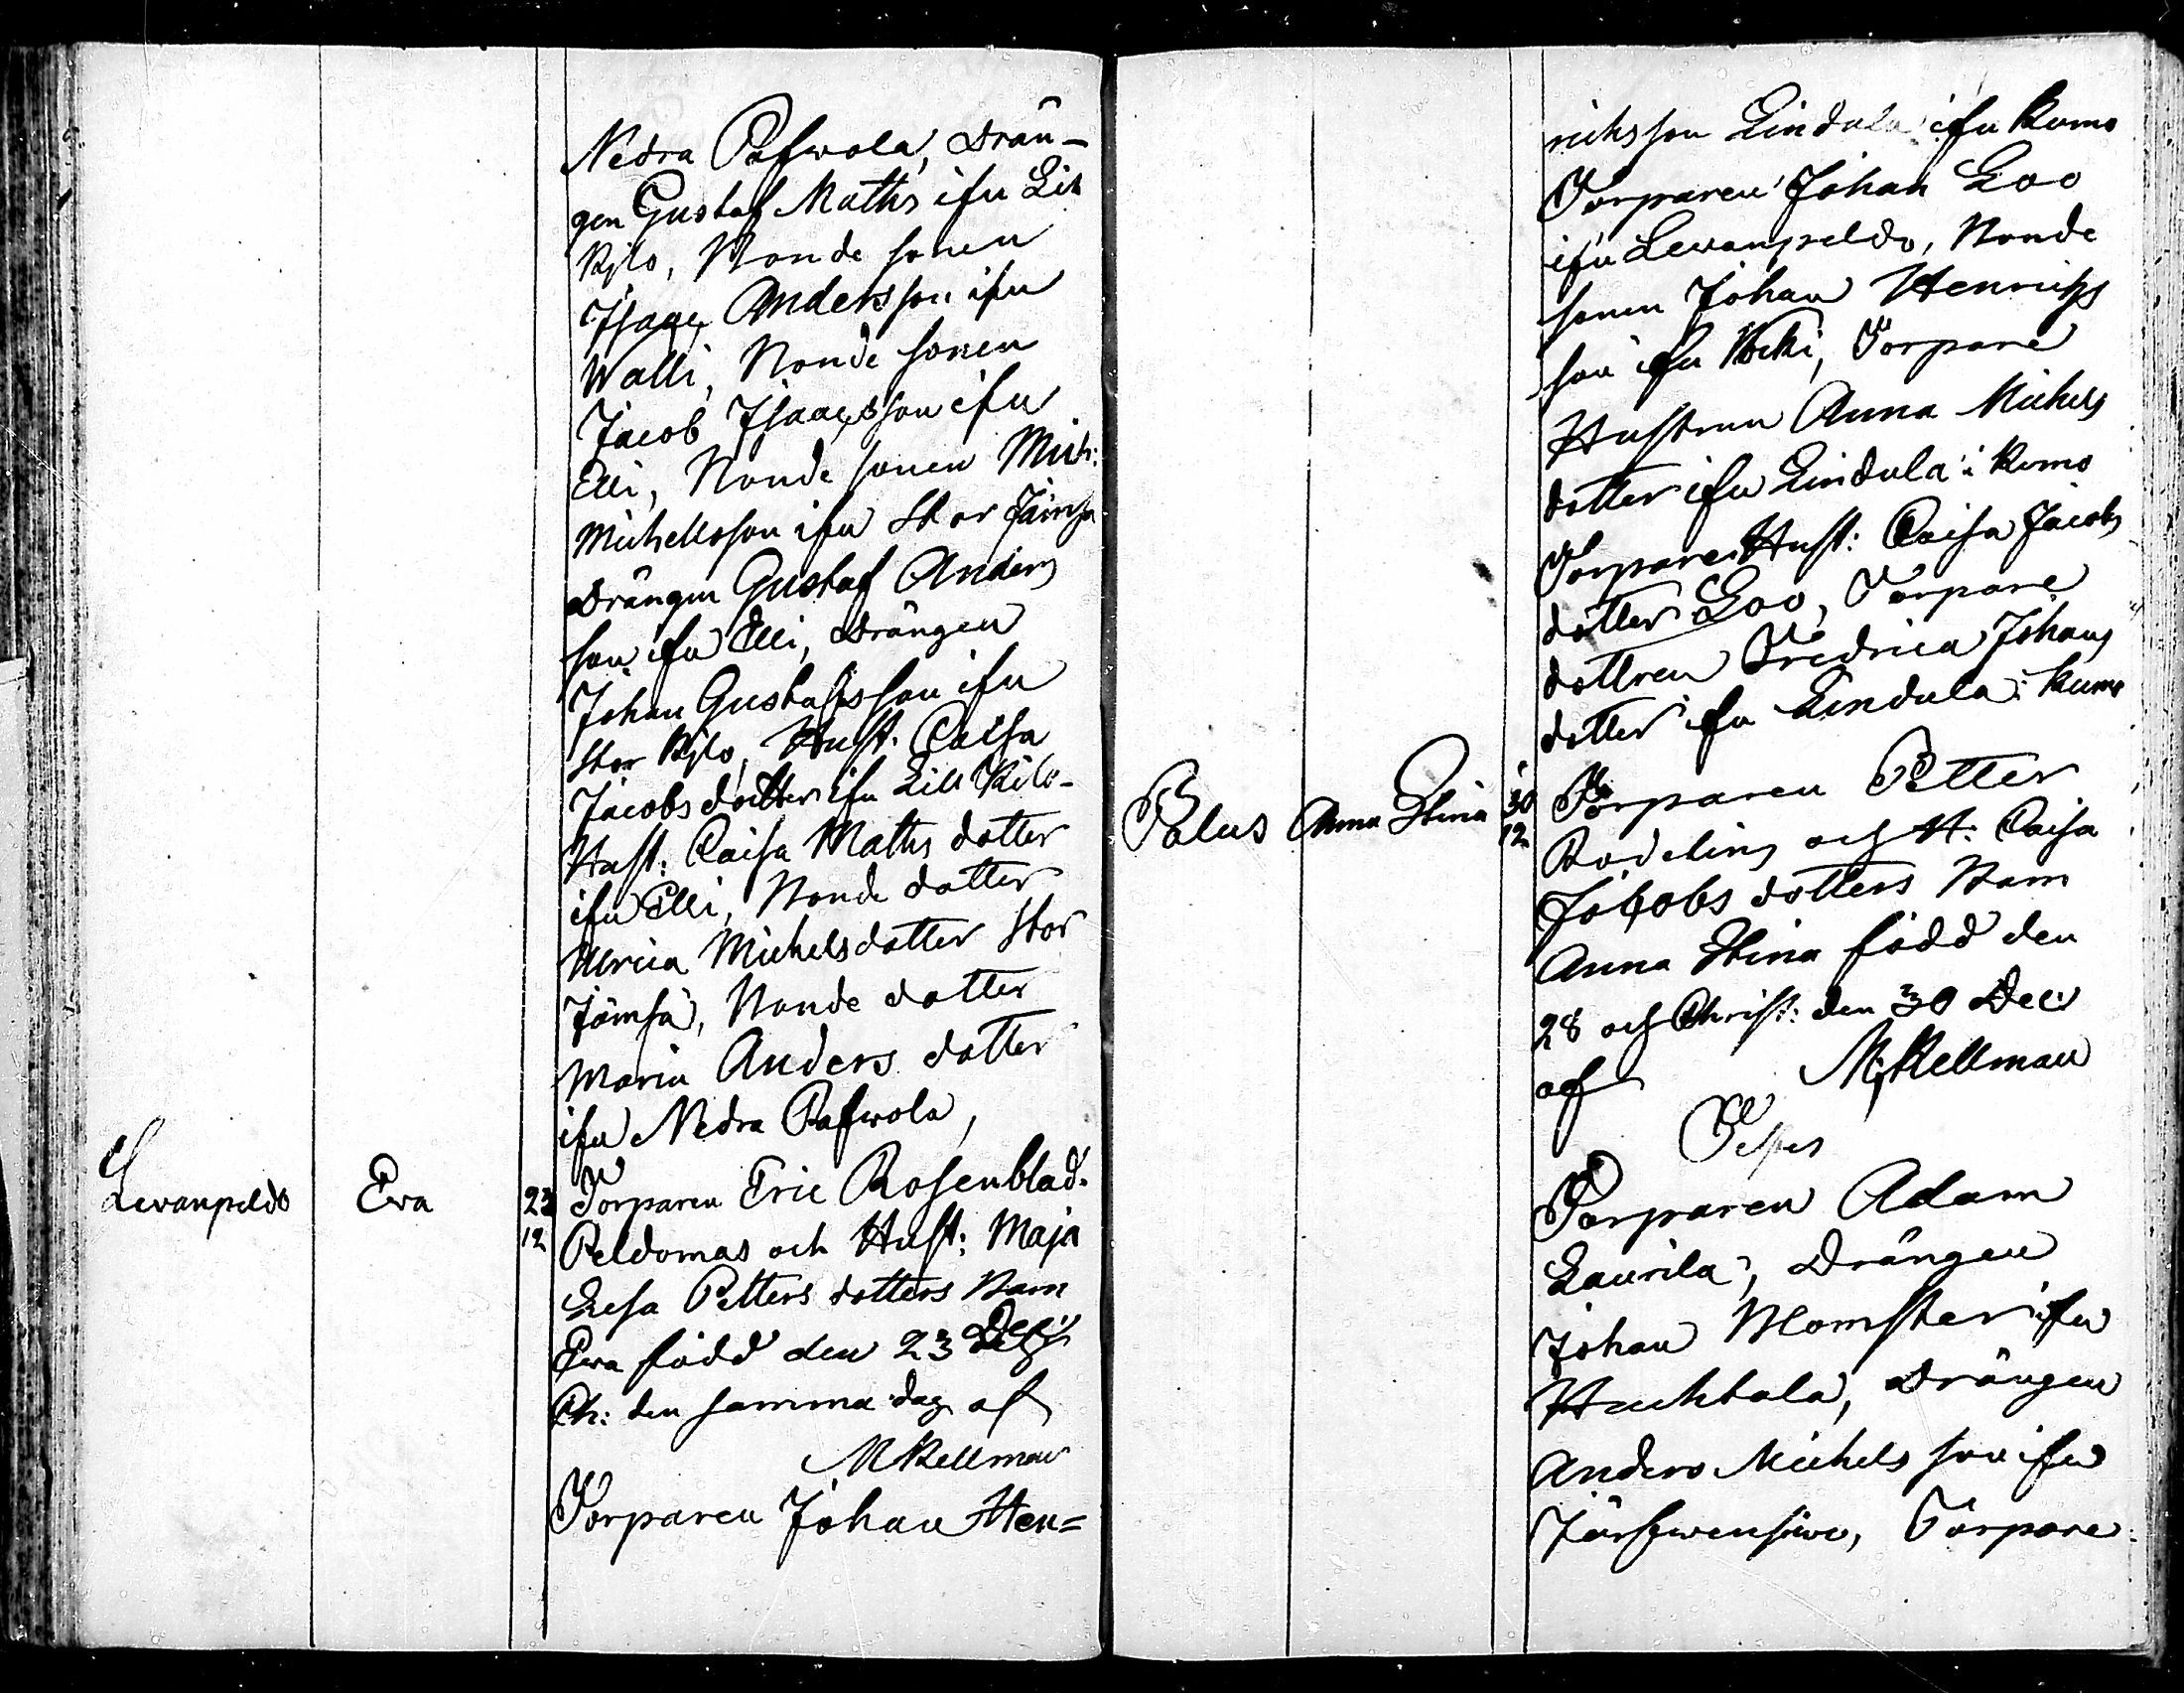 Nedra Pafwola, Drän-
gen Gustaf Maths ifrn Lill
Kjlo, Bonde sonen
Isaac Andersson ifrn
Walli, Bonde sonen
Jacob Isaacsson ifrn
Elli, Bonde sonen Mich:
Michelsson ifrn Stor Jämsä
Drängen Gustaf Anders
son ifrn Elli, Drängen
Johan Gustafsson ifrn
Stor Kjlo, Hust. Caisa
Jacobs dotter ifrn Lill Kilo-
Hust: Caisa Maths dotter
ifrn Elli, Bonde dotter
Ulrica Michelsdotter Stor
Jämsä, Bonde dotter
Maria Anders dotter
ifrn Nedra Pafwola,
Levanpeldo Eva 23 12 Torparen Eric Rosenblad.
Peldomas och Hust: Maja
Lesa Petters dotters Barn
Eva född den 23 Decbr
Ch: den samma dag af
M Kellman
Torparen Johan Hen=
richsson Lindula ifrn Kumo
Torparen Johan Loo
ifrn Levanpeldo, Bonde
sonen Johan Henrichs
son ifrn Torpare
Hustrun Anna Michels
dotter ifrn Lindula i Kumo
Torpare Hust: Caisa Jacobs
dotter Loo, Torpare
dottren Fredrica Johans
dotter ifrn Lindula i Kumo
Palus Anna Stina 30 12 Torparen Petter
Rodeling och H: Caisa
Jakobs dotters Barn
Anna Stina född den
28 och Christ: den 30 Dec:
af M Kellman
Testes
Torparen Adam
Laurila, Drängen
Johan Blomster ifrn
Huchtala, Drängen
Anders Michels son ifrn
Torpare